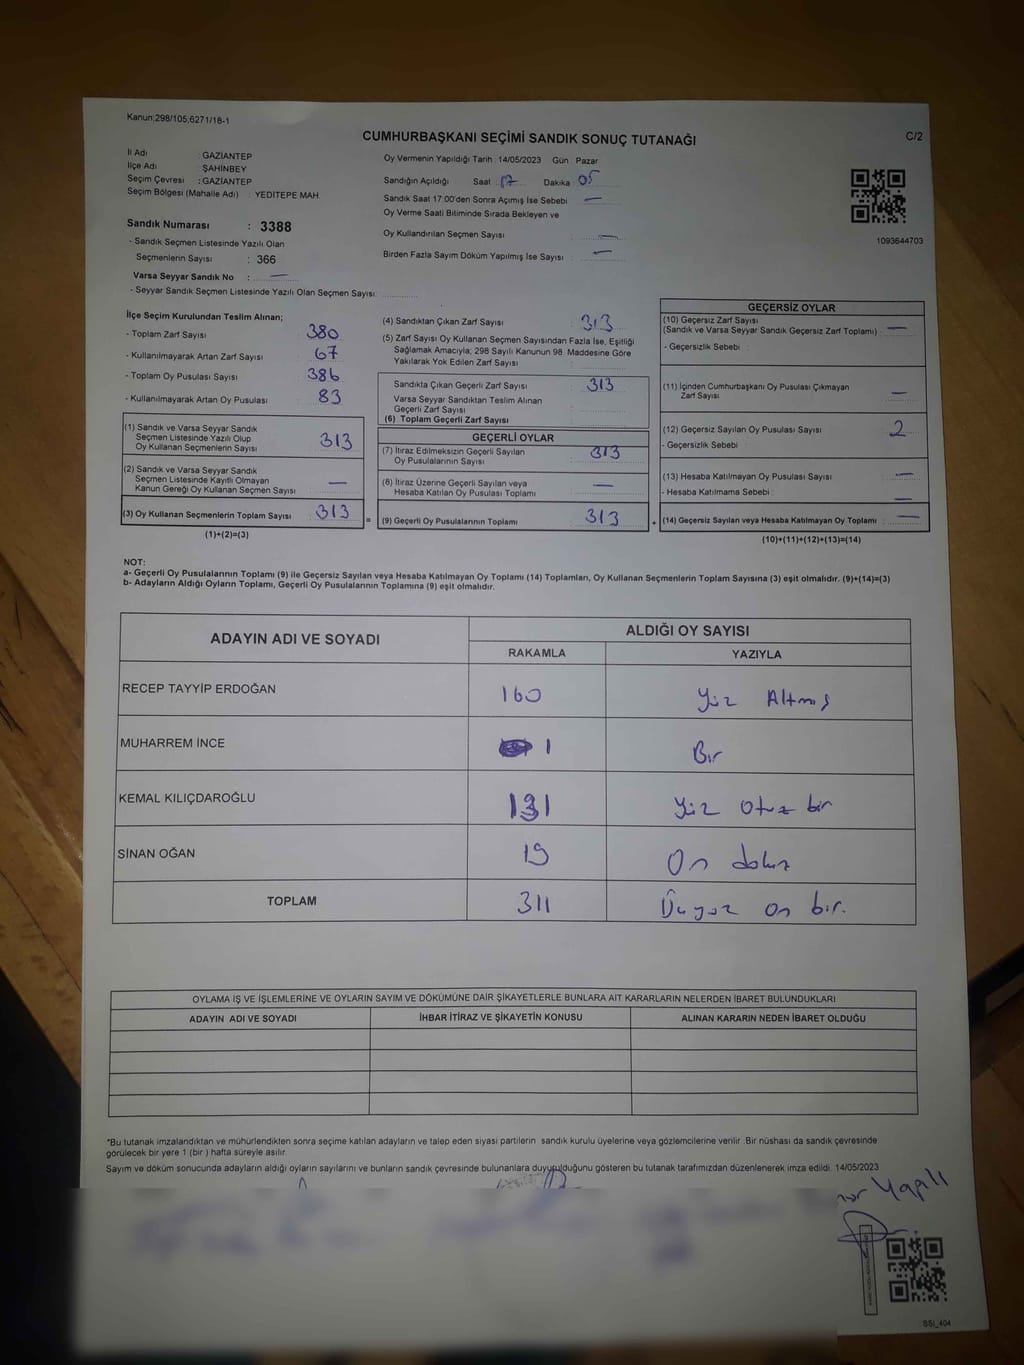 Kanun;298/105;6271/18-1
CUMHURBAŞKANI SEÇİMİ SANDIK SONUÇ TUTANAĞI
C/2
İl Adı : GAZİANTEP
İlçe Adı : ŞAHİNBEY
Seçim Çevresi : GAZİANTEP
Seçim Bölgesi (Mahalle Adı) : YEDİTEPE MAH.
Oy Vermenin Yapıldığı Tarih : 14/05/2023 Gün : Pazar
Sandığın Açıldığı Saat 17 Dakika 05
Sandık Saat 17:00'den Sonra Açımış İse Sebebi : —
Oy Verme Saati Bitiminde Sırada Bekleyen ve
Oy Kullandırılan Seçmen Sayısı : —
Birden Fazla Sayım Döküm Yapılmış İse Sayısı : —
1093644703
Sandık Numarası : 3388
- Sandık Seçmen Listesinde Yazılı Olan
Seçmenlerin Sayısı : 366
Varsa Seyyar Sandık No : —
- Seyyar Sandık Seçmen Listesinde Yazılı Olan Seçmen Sayısı:
İlçe Seçim Kurulundan Teslim Alınan;
- Toplam Zarf Sayısı : 380
- Kullanılmayarak Artan Zarf Sayısı : 67
- Toplam Oy Pusulası Sayısı : 386
- Kullanılmayarak Artan Oy Pusulası : 83
(1) Sandık ve Varsa Seyyar Sandık
Seçmen Listesinde Yazılı Olup
Oy Kullanan Seçmenlerin Sayısı : 313
(2) Sandık ve Varsa Seyyar Sandık
Seçmen Listesinde Kayıtlı Olmayan
Kanun Gereği Oy Kullanan Seçmen Sayısı : —
(3) Oy Kullanan Seçmenlerin Toplam Sayısı : 313
(1)+(2)=(3)
(4) Sandıktan Çıkan Zarf Sayısı : 313
(5) Zarf Sayısı Oy Kullanan Seçmen Sayısından Fazla İse, Eşitliği
Sağlamak Amacıyla; 298 Sayılı Kanunun 98. Maddesine Göre
Yakılarak Yok Edilen Zarf Sayısı :
Sandıkta Çıkan Geçerli Zarf Sayısı : 313
Varsa Seyyar Sandıktan Teslim Alınan
Geçerli Zarf Sayısı :
(6) Toplam Geçerli Zarf Sayısı :
GEÇERLİ OYLAR
(7) İtiraz Edilmeksizin Geçerli Sayılan
Oy Pusulalarının Sayısı : 313
(8) İtiraz Üzerine Geçerli Sayılan veya
Hesaba Katılan Oy Pusulası Toplamı : —
= (9) Geçerli Oy Pusulalarının Toplamı : 313
GEÇERSİZ OYLAR
(10) Geçersiz Zarf Sayısı
(Sandık ve Varsa Seyyar Sandık Geçersiz Zarf Toplamı) : —
- Geçersizlik Sebebi :
(11) İçinden Cumhurbaşkanı Oy Pusulası Çıkmayan
Zarf Sayısı : —
(12) Geçersiz Sayılan Oy Pusulası Sayısı : 2
- Geçersizlik Sebebi :
(13) Hesaba Katılmayan Oy Pusulası Sayısı : —
- Hesaba Katılmama Sebebi : —
+ (14) Geçersiz Sayılan veya Hesaba Katılmayan Oy Toplamı : —
(10)+(11)+(12)+(13)=(14)
NOT:
a- Geçerli Oy Pusulalarının Toplamı (9) ile Geçersiz Sayılan veya Hesaba Katılmayan Oy Toplamı (14) Toplamları, Oy Kullanan Seçmenlerin Toplam Sayısına (3) eşit olmalıdır. (9)+(14)=(3)
b- Adayların Aldığı Oyların Toplamı, Geçerli Oy Pusulalarının Toplamına (9) eşit olmalıdır.
ADAYIN ADI VE SOYADI
ALDIĞI OY SAYISI
RAKAMLA YAZIYLA
RECEP TAYYİP ERDOĞAN 160 Yüz Altmış
MUHARREM İNCE 1 Bir
KEMAL KILIÇDAROĞLU 131 Yüz otuz bir
SİNAN OĞAN 19 On dokuz
TOPLAM 311 Üçyüz on bir.
OYLAMA İŞ VE İŞLEMLERİNE VE OYLARIN SAYIM VE DÖKÜMÜNE DAİR ŞİKAYETLERLE BUNLARA AİT KARARLARIN NELERDEN İBARET BULUNDUKLARI
ADAYIN ADI VE SOYADI İHBAR İTİRAZ VE ŞİKAYETİN KONUSU ALINAN KARARIN NEDEN İBARET OLDUĞU
*Bu tutanak imzalandıktan ve mühürlendikten sonra seçime katılan adayların ve talep eden siyasi partilerin sandık kurulu üyelerine veya gözlemcilerine verilir. Bir nüshası da sandık çevresinde
görülecek bir yere 1 (bir ) hafta süreyle asılır.
Sayım ve döküm sonucunda adayların aldığı oyların sayılarını ve bunların sandık çevresinde bulunanlara duyurulduğunu gösteren bu tutanak tarafımızdan düzenlenerek imza edildi. 14/05/2023
Yapalı
SSİ_404